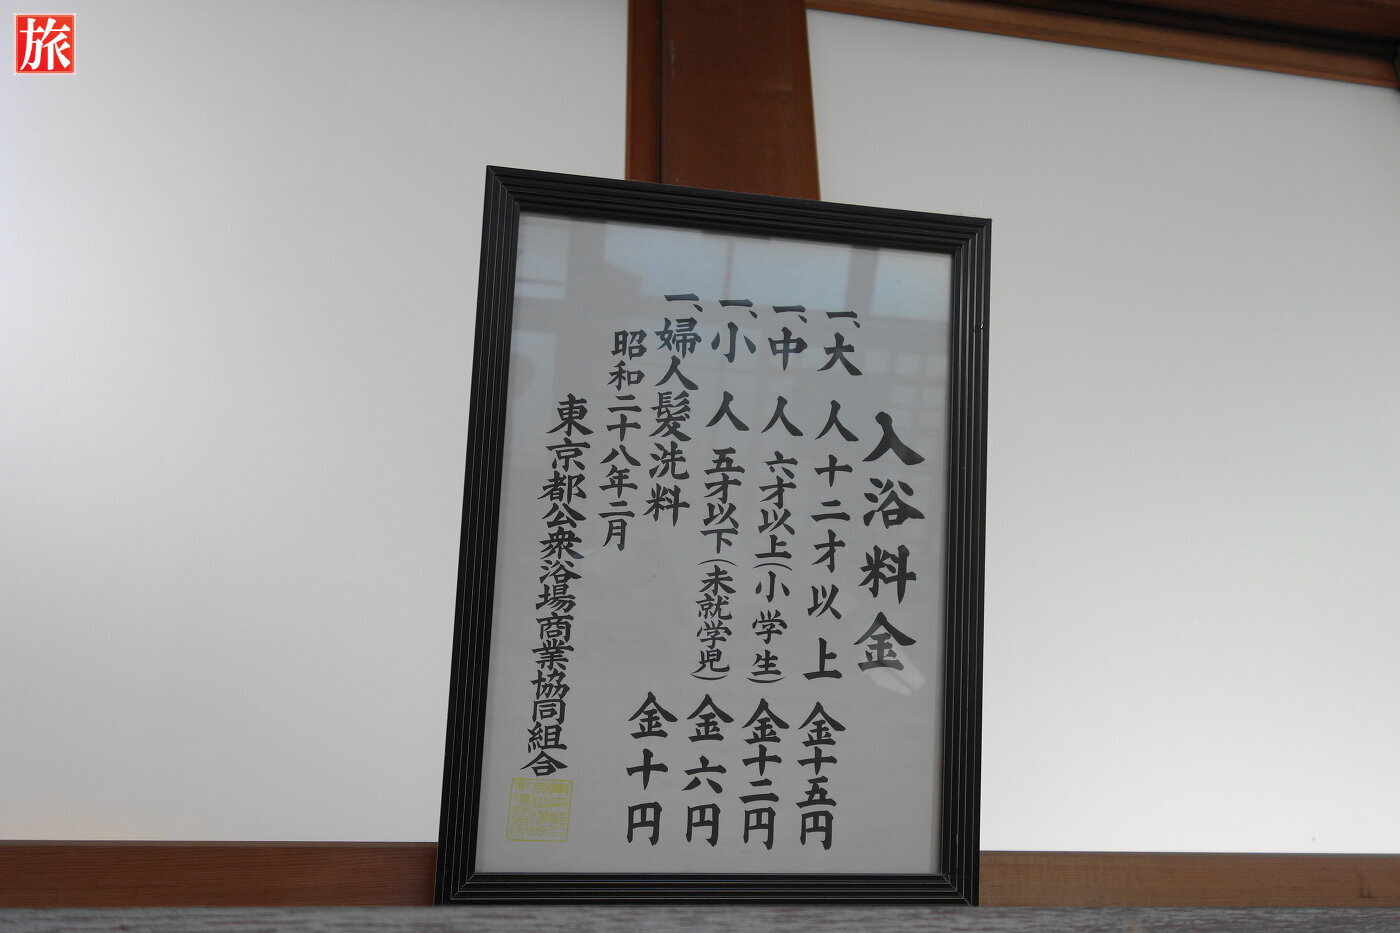 旅
入浴料金
一、大人 十二才以上 金十五円
一、中人 六才以上(小学生) 金十二円
一、小人 五才以下(未就学児) 金六円
一、婦人髪洗料 金十円
昭和二十八年二月
東京都公衆浴場商業協同組合